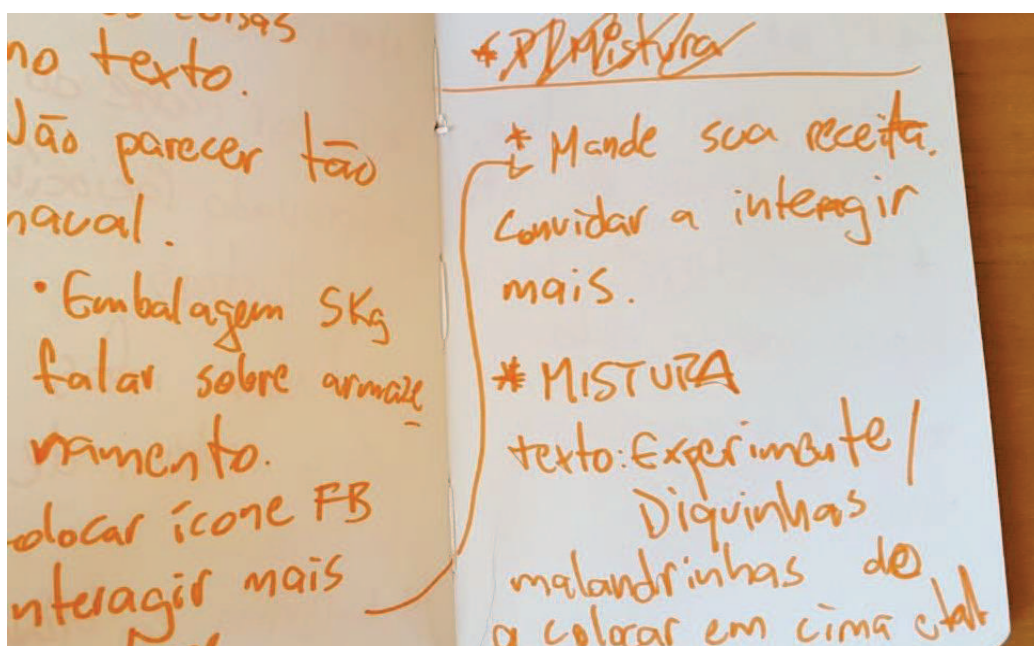 coisas
no texto.
Não parecer tão
naval.
• Embalagem 5Kg
falar sobre armaze
namento.
colocar ícone FB
interagir mais
* Mistura
* Mande sua receita.
Convidar a interagir
mais.
* MISTURA
texto: Experimente /
Diquinhas
malandrinhas do
colocar em cima